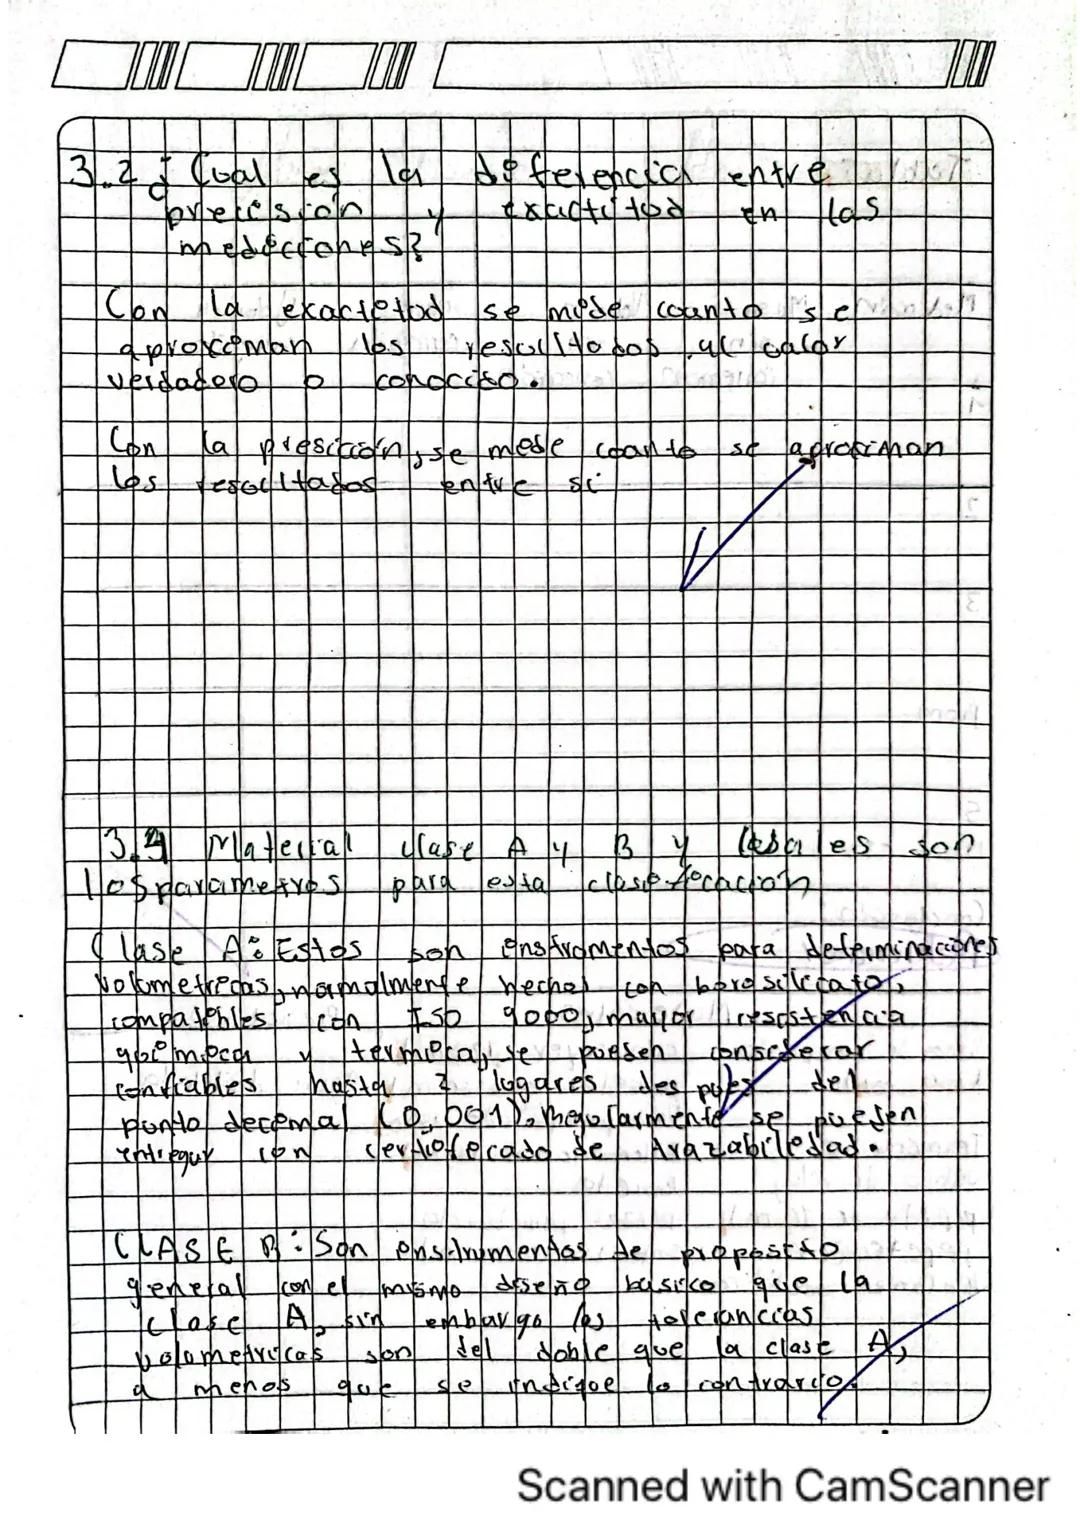 3.2 ¿Cual es la diferencia entre
precision y exactitud en las
mediciones?
Con la exactitud se mide cuanto se
aproximan los resultados al valor
verdadero o conocido.
Con la presicion, se mide cuanto se aproximan
los resultados entre si
3.4 Material clase A y B y cuales son
los parametros para esta clasificacion
Clase A: Estos son instrumentos para determinaciones
volumetricas, normalmente hechos con borosilicato,
compatibles con ISO 9000, mayor resistencia
quimica y termica, se pueden considerar
confiables hasta 2 lugares despues del
punto decimal (0,001). Regularmente se pueden
entregar con certificado de trazabilidad.
CLASE B: Son instrumentos de proposito
general con el mismo diseño basico que la
clase A, sin embargo las tolerancias
volumetricas son del doble que la clase A,
a menos que se indique lo contrario.
Scanned with CamScanner